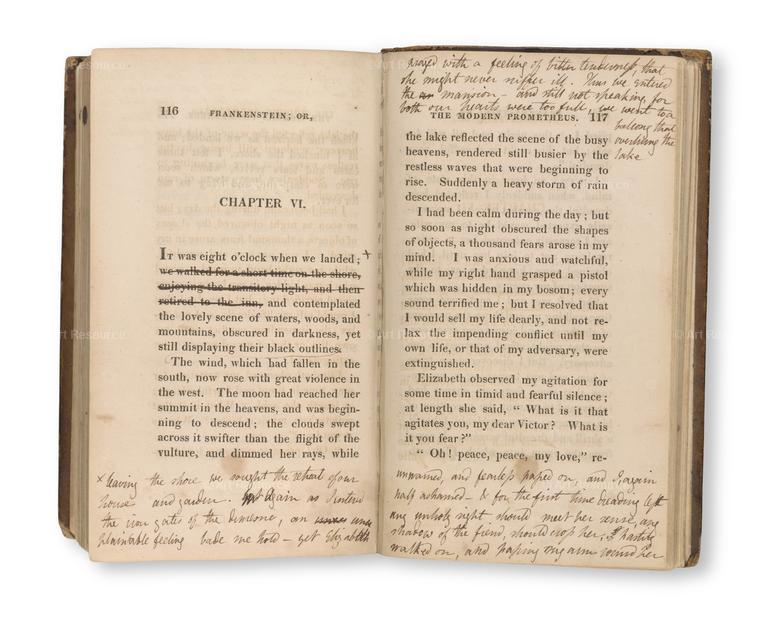 116 FRANKENSTEIN; OR,
CHAPTER VI.
IT was eight o'clock when we landed; +
we walked for a short time on the shore,
enjoying the transitory light, and then
retired to the inn, and contemplated
the lovely scene of waters, woods, and
mountains, obscured in darkness, yet
still displaying their black outlines.
The wind, which had fallen in the
south, now rose with great violence in
the west. The moon had reached her
summit in the heavens, and was begin-
ning to descend; the clouds swept
across it swifter than the flight of the
vulture, and dimmed her rays, while
x leaving the shore we sought the retreat of our
house and garden. Again as I entered
the iron gates of the domain, an
plaintable feeling bade me hold – yet Elizabeth
prayed with a feeling of bitter tenderness, that
she might never suffer ill. Thus we entered
the mansion – and still not speaking, for
both our hearts were too full, we went to a
balcony that
overhung the
lake
THE MODERN PROMETHEUS. 117
the lake reflected the scene of the busy
heavens, rendered still busier by the
restless waves that were beginning to
rise. Suddenly a heavy storm of rain
descended.
I had been calm during the day; but
so soon as night obscured the shapes
of objects, a thousand fears arose in my
mind. I was anxious and watchful,
while my right hand grasped a pistol
which was hidden in my bosom; every
sound terrified me; but I resolved that
I would sell my life dearly, and not re-
lax the impending conflict until my
own life, or that of my adversary, were
extinguished.
Elizabeth observed my agitation for
some time in timid and fearful silence;
at length she said, " What is it that
agitates you, my dear Victor? What is
it you fear?"
" Oh! peace, peace, my love," re-
unwarned, and fearless passed on, and I, again
half ashamed – & for the first time dreading lest
any unholy sight should meet her sense, any
shadow of the fiend, should cross her, hastily
walked on, and passing my arm round her
© Art Resource